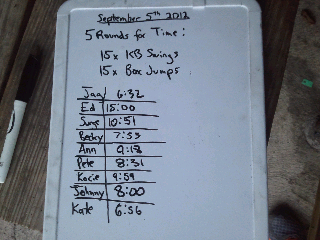 September 5th 2012
5 Rounds for Time:
15x KB Swings
15x Box Jumps
Jay 6:32
Ed 15:00
June 10:51
Becky 7:53
Ann 9:18
Pete 8:31
Kacie 9:59
Johnny 8:00
Kate 6:56